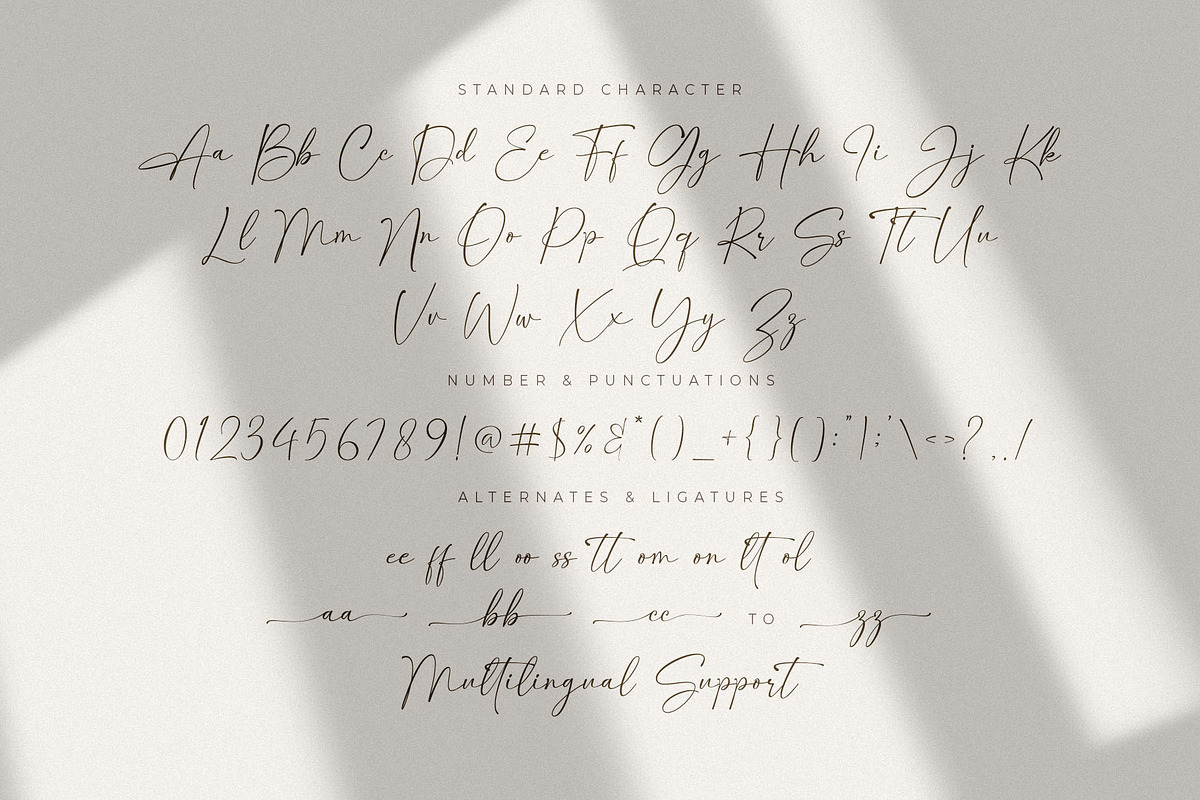 STANDARD CHARACTER
Aa Bb Cc Dd Ee Ff Gg Hh Ii Jj Kk
Ll Mm Nn Oo Pp Qq Rr Ss Tt Uu
Vv Ww Xx Yy Zz
NUMBER & PUNCTUATIONS
0123456789!@#$%&*()_+{}():"|;'\<>?,./
ALTERNATES & LIGATURES
ee ff ll oo ss tt om on lt ol
aa bb cc TO zz
Multilingual Support